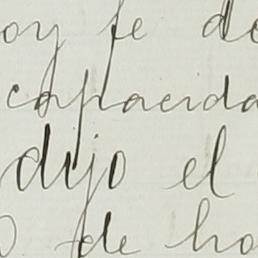 oy fe de
capacida
dijo el
de ho